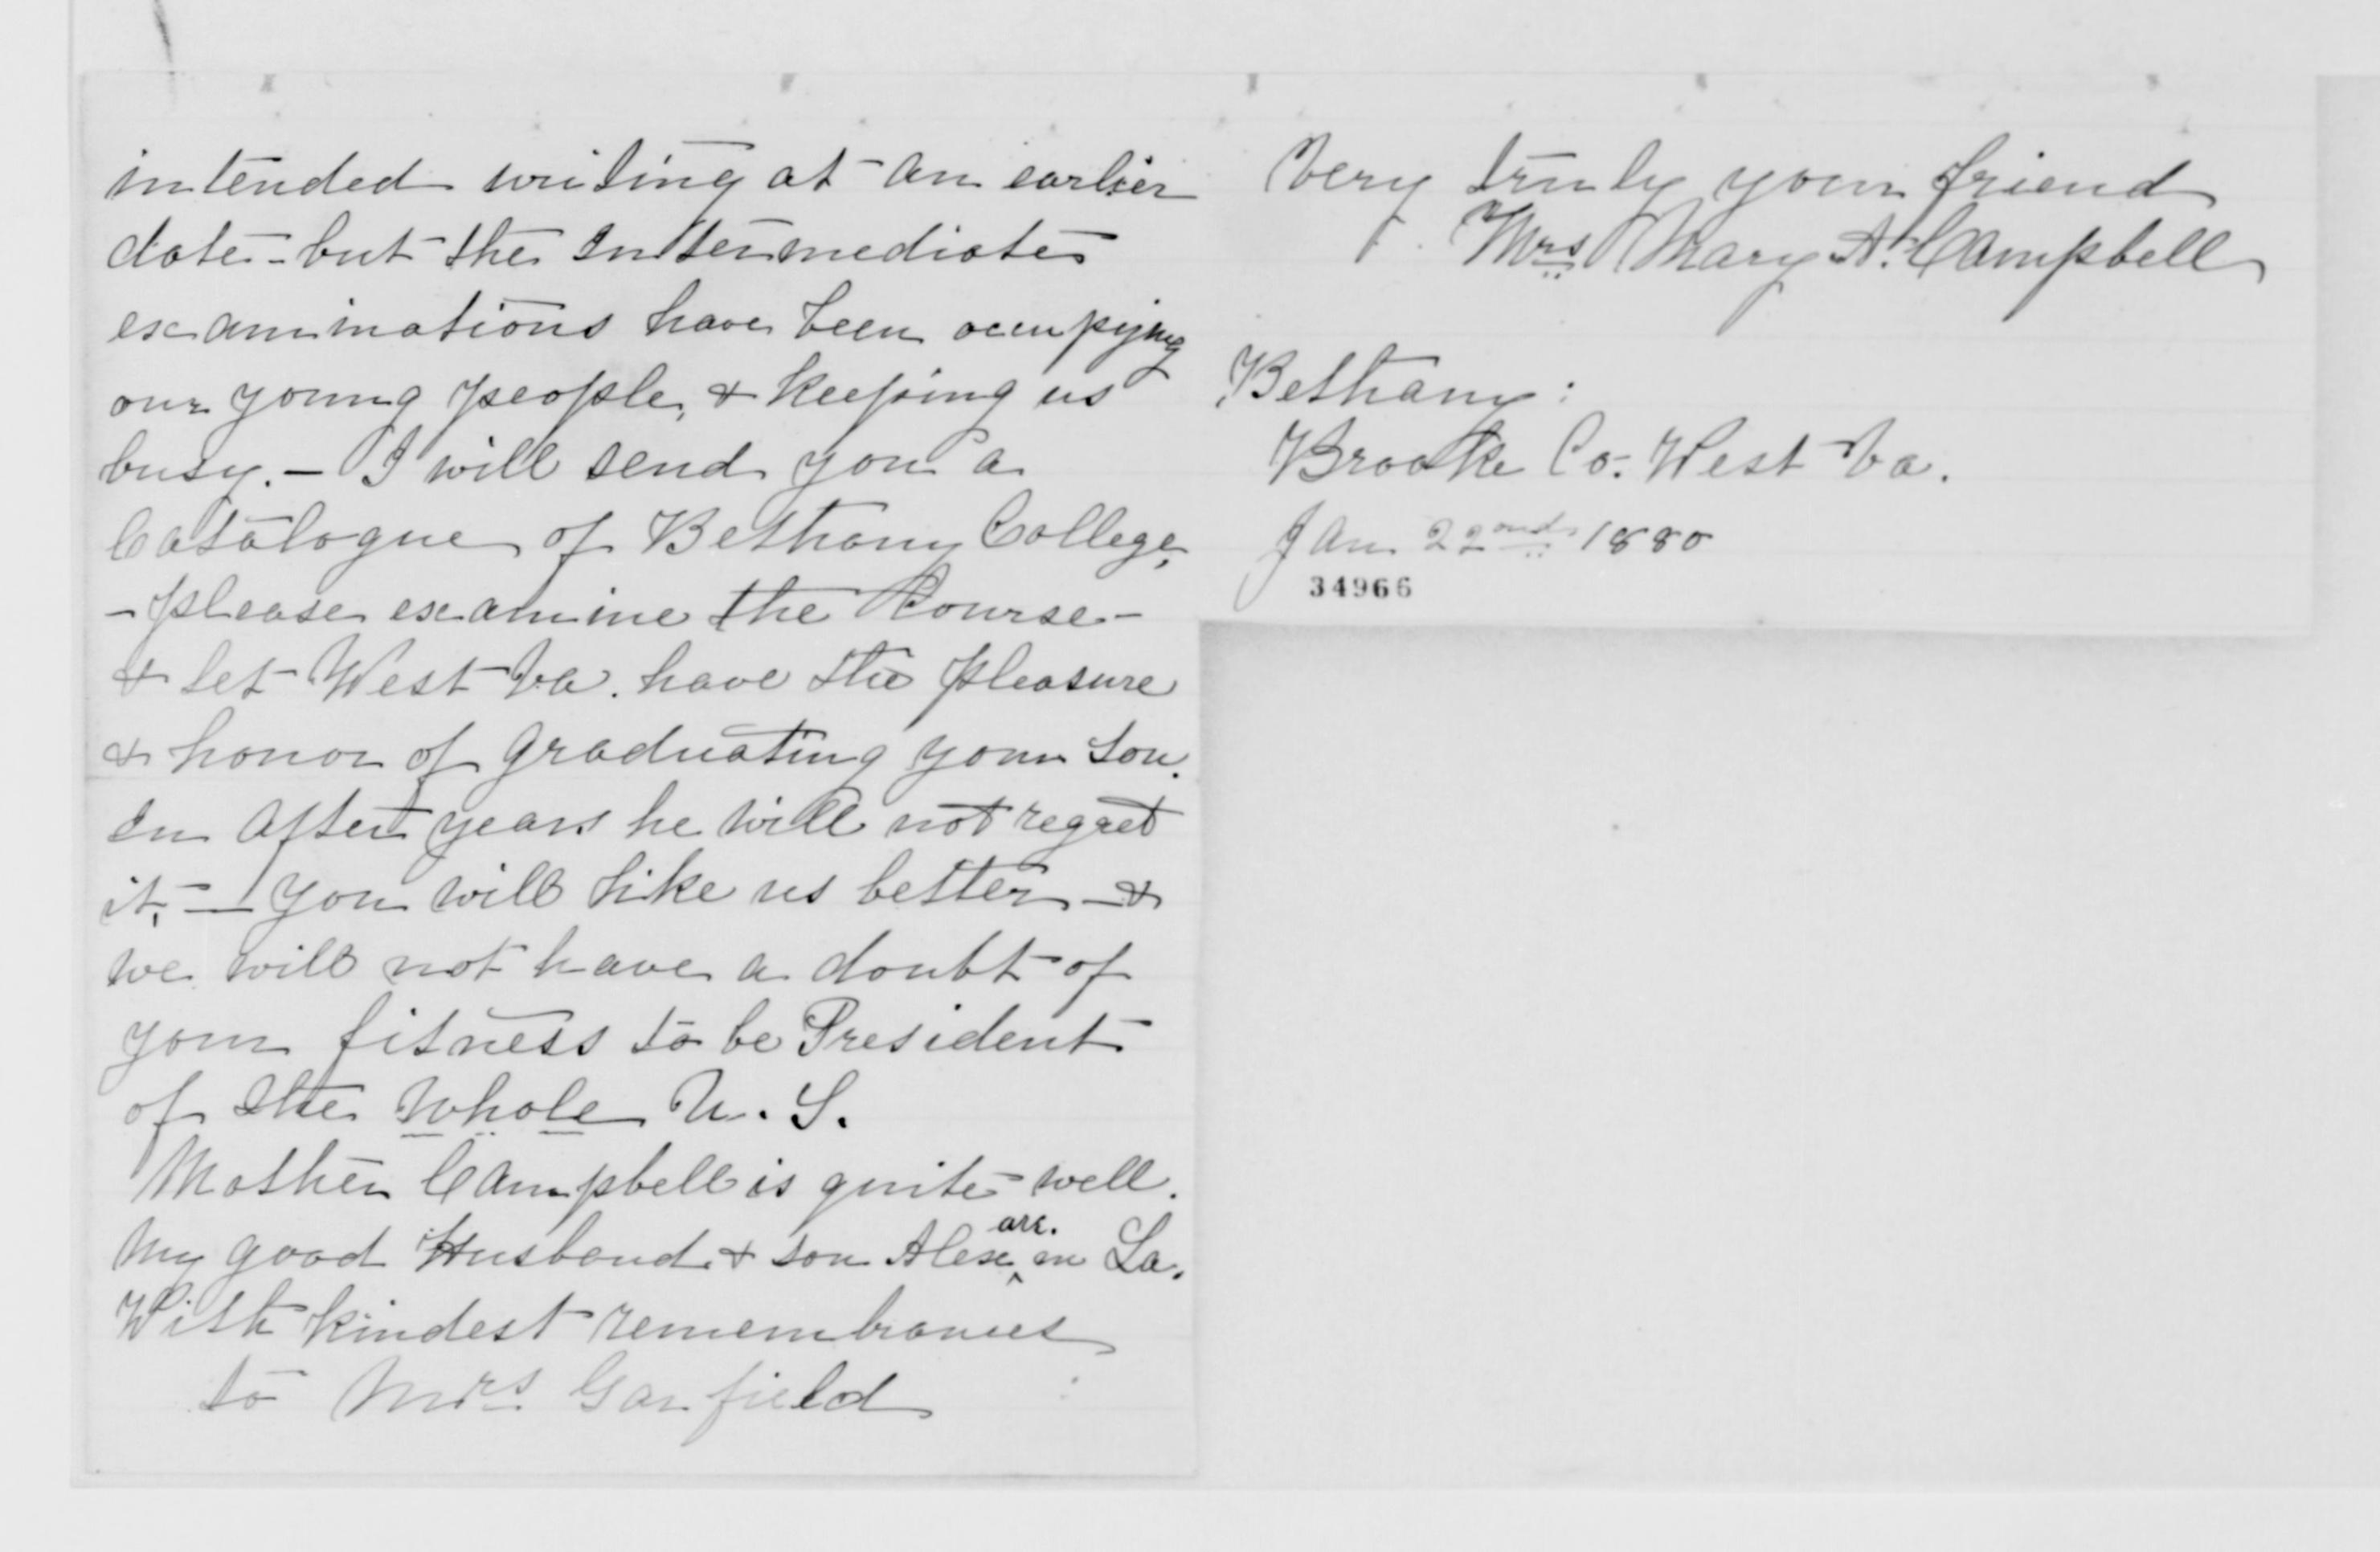 intended writing at an earlier
date - but the Intermediate
examinations have been occupying
our young people, & keeping us
busy. - I will send you a
Catalogue of Bethany College,
- please examine the Course -
& let West Va. have the pleasure
& honor of graduating your Son.
In after years he will not regret
it, - you will like us better - &
we will not have a doubt of
your fitness to be President
of the whole U. S.
Mother Campbell is quite well.
My good Husband & son Alex are. in La.
With kindest remembrances
to Mrs Garfield
Very truly your friend
Mrs Mary A. Campbell
Bethany:
Brooke Co. West Va.
Jan 22nd 1880
34966